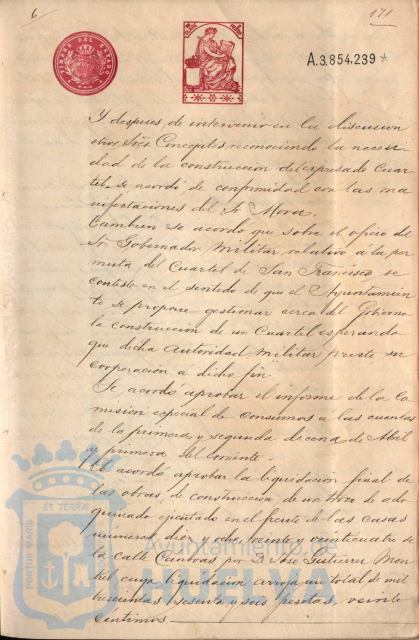 6
171
TIMBRE DEL ESTADO
A.3.854.239
Y despues de intervenir en la discusion
otros Sres Concejales reconociendo la necesi
dad de la construccion del expresado Cuar
tel, se acordó de conformidad con las ma
nifestaciones del Sr Mora.
Tambien se acordo que sobre el oficio del
Sr. Gobernador Militar, relativo á la per
muta del Cuartel de San Francisco se
conteste en el sentido de que el Ayuntamien
to se propone gestionar cerca del Gobierno
la construccion de un Cuartel esperando
que dicha autoridad Militar preste su
cooperacion a dicho fin.
Se acordó aprobar el informe de la Co
mision especial de consumos a las cuentas
de la primera y segunda decena de Abril
y primera del corriente.
Se acordó aprobar la liquidacion final de
las obras de construccion de un trozo de ado
quinado ejecutado en el frente de las casas
numeros diez y ocho, veinte y veinticuatro de
la calle Canovas, por D. Jose Gutierrez Mon
tiel cuya liquidacion arroja un total de mil
sesenta y seis pesetas, veinte
centimos
PORTUS MARIS
ET TERRAE
Ayuntamiento de
HUELVA